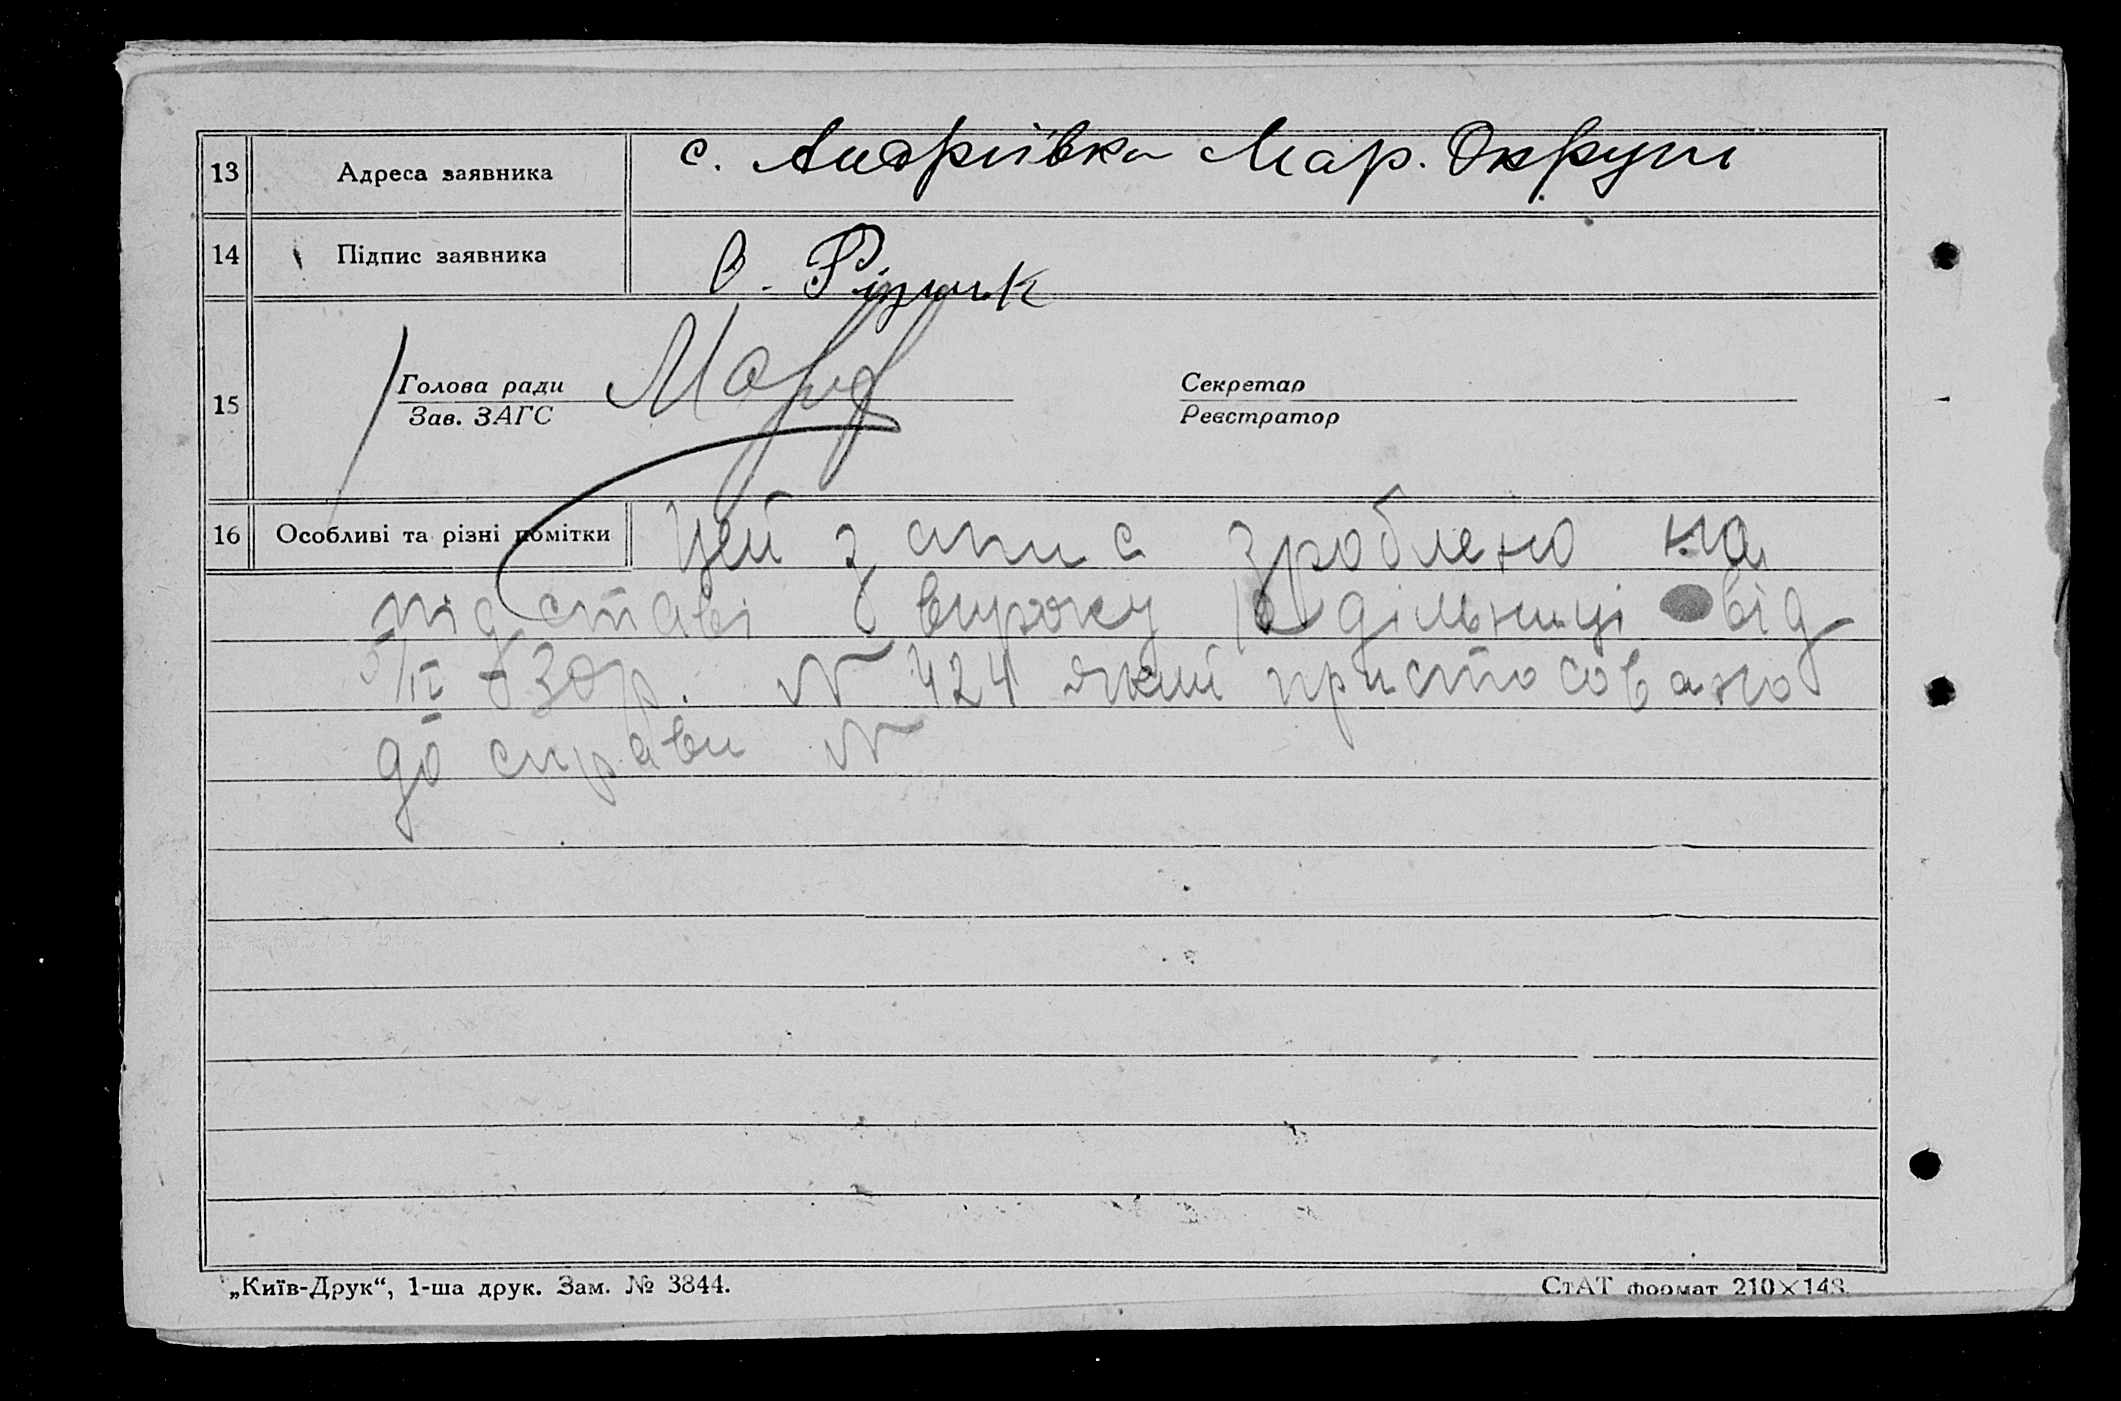 13 Адреса заявника с. Андріївка Мар. Округи
14 Підпис заявника О.
Голова ради Секретар
15
Зав. ЗАГС Реєстратор
16 Особливі та різні помітки Цей запис зроблено на
підставі вироку дільниці від
5/IV 30р. № 424 який пристосовано
до справи №
„Київ-Друк“, 1-ша друк. Зам. № 3844. СтАТ формат 210×148.